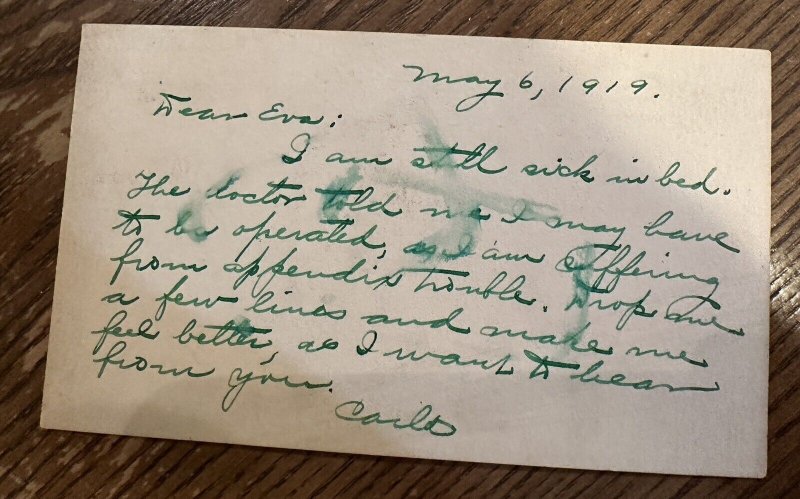 May 6, 1919.
Dear Eva:
I am still sick in bed.
The doctor told me I may have
to be operated, as I am suffering
from appendix trouble. Drop me
a few lines and make me
feel better, as I want to hear
from you.